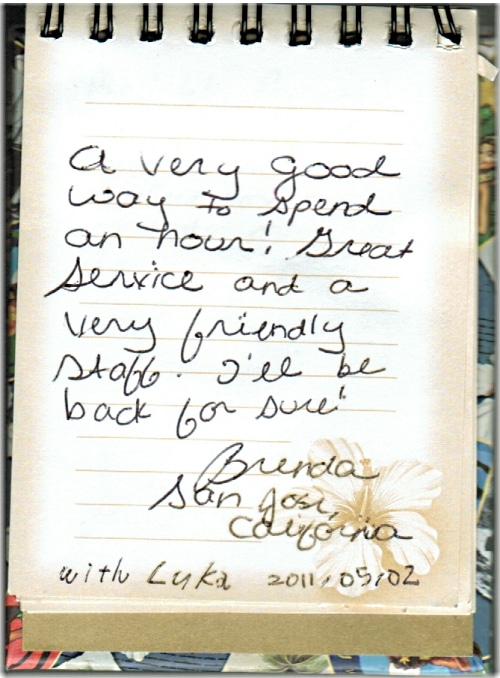 A very good
way to spend
an hour! Great
service and a
very friendly
staff. I'll be
back for sure!
Brenda
San Jose,
California
with Luka 2011.05.02